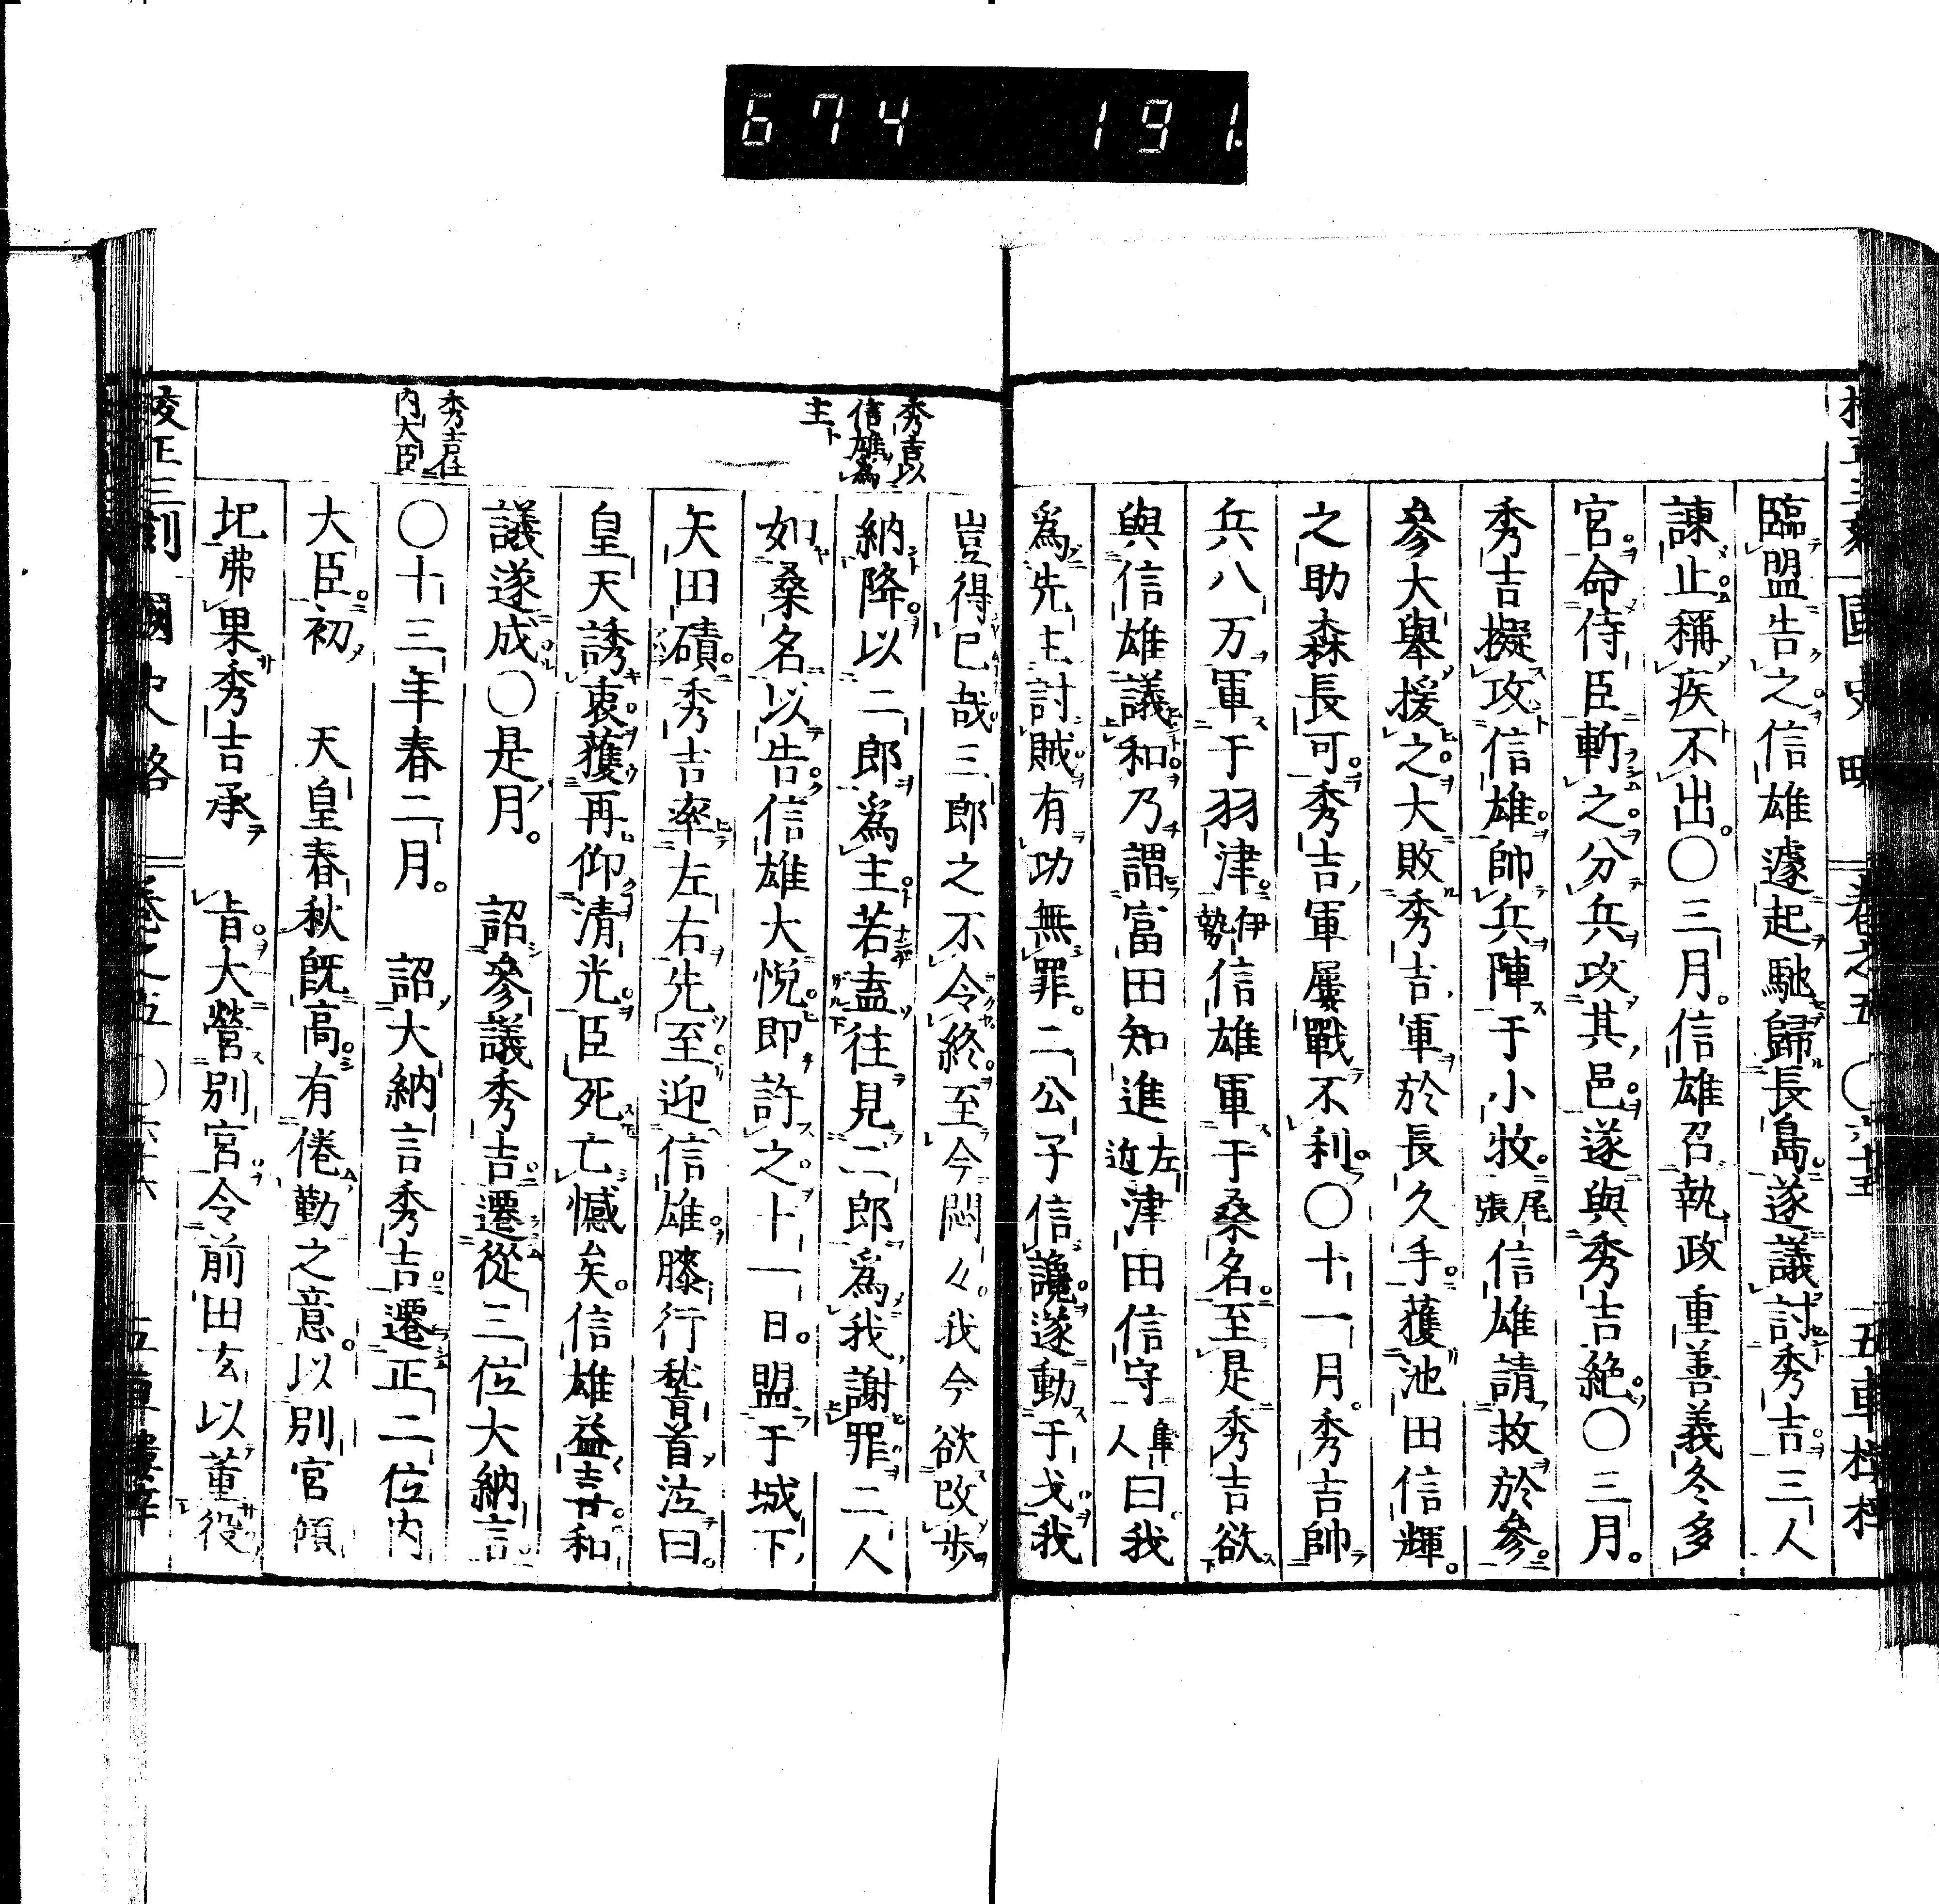 674 191
臨盟告之信雄遽起馳歸長島遂議討秀吉三人
諌止稱疾不出○三月信雄召執政重善義冬多
宮命侍臣斬之分兵攻其邑遂與秀吉絶○三月
秀吉擬攻信雄帥兵陣于小牧尾張信雄請救於參
參大舉援之大敗秀吉軍於長久手獲池田信輝
之助森長可秀吉軍屢戰不利○十一月秀吉帥
兵八万軍于羽津伊勢信雄軍于桑名至是秀吉欲
與信雄議和乃謂富田知進左近津田信守隼人曰我
爲先主討賊有功無罪二公子信讒遂動干戈我
秀吉以
信雄爲
主
秀吉任
内大臣
豈得已哉三郎之不令終至今悶々我今欲改歩
納降以二郎爲主若盍往見二郎爲我謝罪二人
如桑名以告信雄大悦即許之十一日盟于城下
矢田磧秀吉率左右先至迎信雄膝行稽首泣曰
皇天誘衷獲再仰清光臣死亡憾矣信雄益喜和
議遂成○是月 詔參議秀吉遷從三位大納言
○十三年春二月 詔大納言秀吉遷正二位内
大臣初 天皇春秋既高有倦勤之意以別宮傾
圮弗果秀吉承 旨大營別宮令前田玄以董役
校正三刻國史略 卷之五